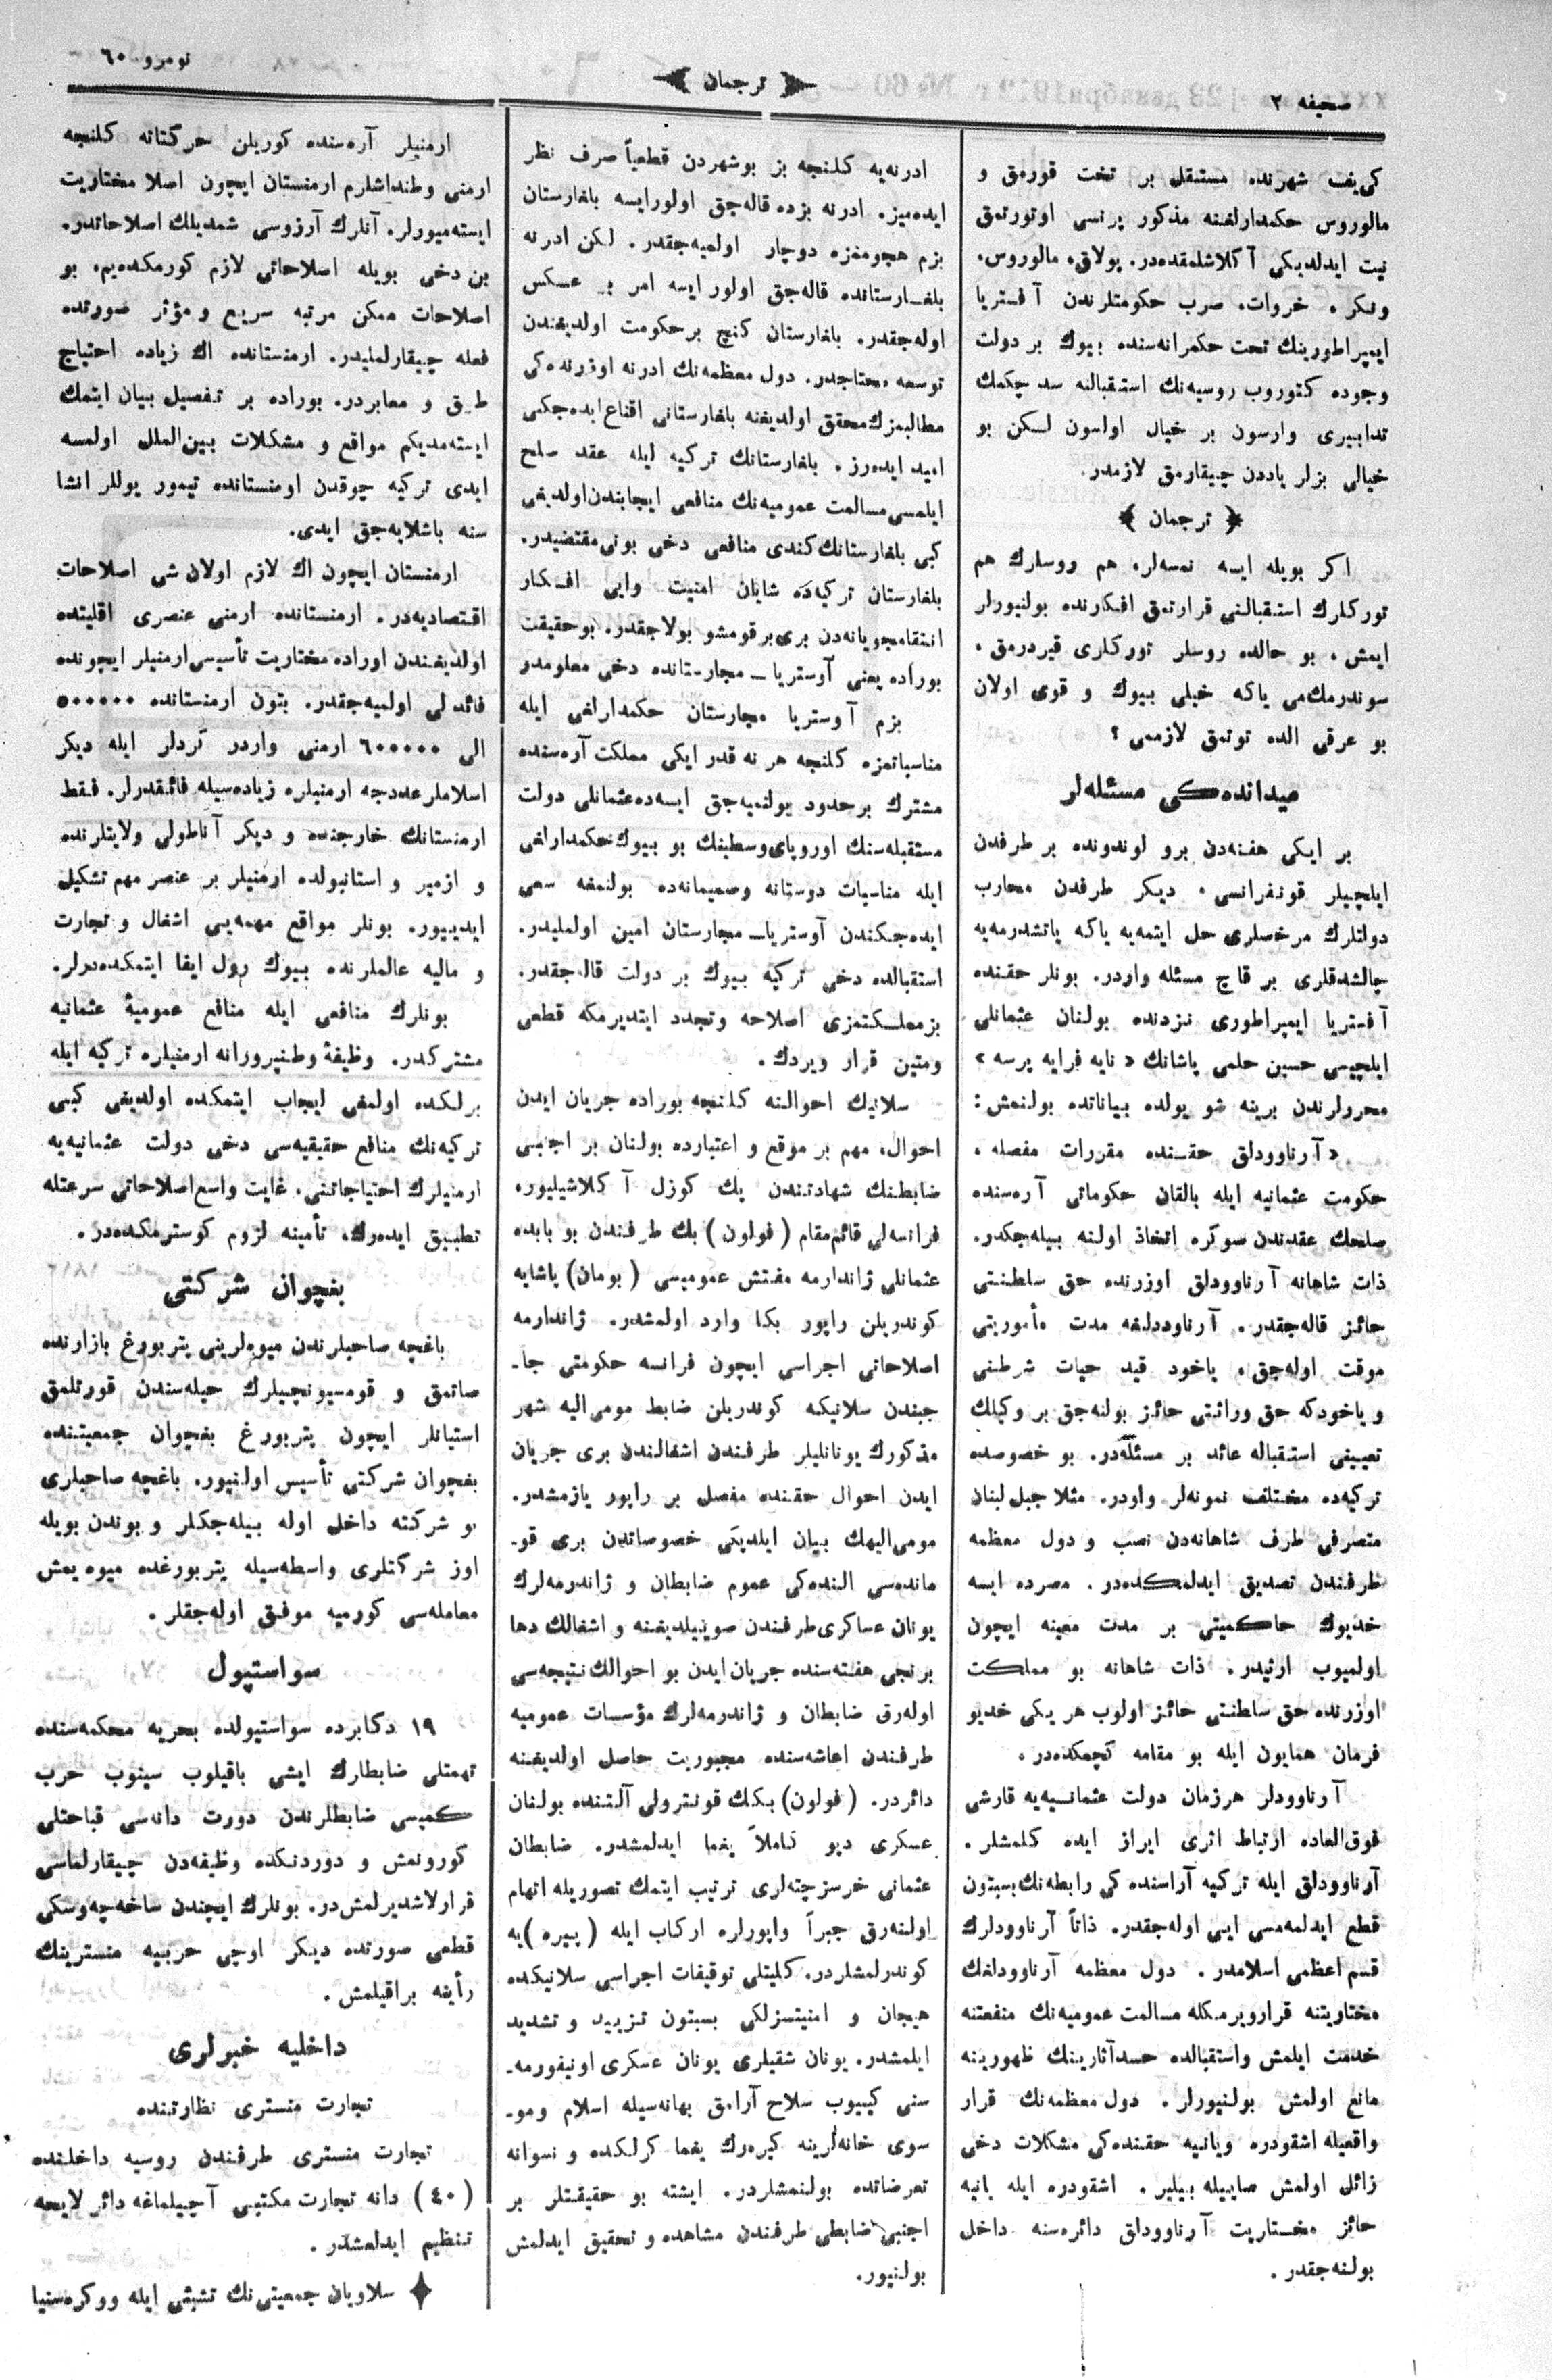 صحیفه ٢
ترجمان
نومرو ٦٠
كی‌یف شهرنده مستقل بر تخت قورمق و
مالوروس حكمدارلغنه مذكور پرنسی اوتورتمق
نیت ایدلدیكی آكلاشلمقده‌در. پولاق، مالوروس،
ونگر، خروات، صرب حكومتلرندن آفستریا
ایمپراطورینك تحت حكمرانه‌سنده بیوك بر دولت
وجوده كتوروب روسیه‌نك استقبالنه سد چكمك
تدابیری وارسون بر خیال اولسون لكن بو
خیالی بزلر یاددن چیقارمق لازمدر.
﴿ ترجمان ﴾
اكر بویله ایسه نمسه‌لر، هم روسلرك هم
توركلرك استقبالنی قرارتمق افكارنده بولنیورلر
ایمش، بو حالده روسلر توركلری قیردرمق،
سوندرمك‌می یاكه خیلی بیوك و قوی اولان
بو عرقی الده توتمق لازممی ؟
میدانده‌كی مسئله‌لر
بر ایكی هفته‌دن برو لوندونده بر طرفدن
ایلچیلر قونفرانسی، دیكر طرفدن محارب
دولتلرك مرخصلری حل ایتمه‌یه یاكه یاتشدرمه‌یه
چالشدقلری بر قاچ مسئله واردر. بونلر حقنده
آفستریا ایمپراطوری نزدنده بولنان عثمانلی
ایلچیسی حسین حلمی پاشانك « نایه فرایه پرسه »
محررلرندن برینه شو یولده بیاناتده بولنمش:
« آرناوودلق حقنده مقررات مفصله،
حكومت عثمانیه ایله بالقان حكوماتی آره‌سنده
صلحك عقدندن صوكره اتخاذ اولنه بیله‌جكدر.
ذات شاهانه آرناوودلق اوزرنده حق سلطنتی
حائز قاله‌جقدر. آرناوودلغه مدت مأموریتی
موقت اوله‌جق، یاخود قید حیات شرطنی
و یاخودكه حق وراثتی حائز بولنه‌جق بر وكیلك
تعیینی استقباله عائد بر مسئله‌در. بو خصوصده
تركیه‌ده مختلف نمونه‌لر واردر. مثلا جبل لبنان
متصرفی طرف شاهانه‌دن نصب و دول معظمه
طرفندن تصدیق ایدلمكده‌در. مصرده ایسه
خدیوك حاكمیتی بر مدت معینه ایچون
اولمیوب ارثیدر. ذات شاهانه بو مملكت
اوزرنده حق سلطنتی حائز اولوب هر یكی خدیو
فرمان همایون ایله بو مقامه كچمكده‌در.
آرناوودلر هرزمان دولت عثمانیه‌یه قارشی
فوق‌العاده ارتباط اثری ابراز ایده كلمشلر.
آرناوودلق ایله تركیه آراسنده كی رابطه‌نك بسبتون
قطع ایدلمه‌مسی ایی اوله‌جقدر. ذاتاً آرناوودلرك
قسم اعظمی اسلامدر. دول معظمه آرناوودلغك
مختاریتنه قرارویرمكله مسالمت عمومیه‌نك منفعتنه
خدمت ایلمش واستقبالده حسدآثارینك ظهورینه
مانع اولمش بولنیورلر. دول معظمه‌نك قرار
واقعیله اشقودره ویانیه حقنده‌كی مشكلات دخی
زائل اولمش صاییله بیلیر. اشقودره ایله یانیه
حائز مختاریت آرناوودلق دائره‌سنه داخل
بولنه‌جقدر.
ادرنه‌یه كلنجه بز بوشهردن قطعیاً صرف نظر
ایده‌میز. ادرنه بزده قاله‌جق اولورایسه بلغارستان
بزم هجومنزه دوچار اولمیه‌جقدر. لكن ادرنه
بلغارستانده قاله‌جق اولور ایسه امر بر عكس
اوله‌جقدر. بلغارستان كنج برحكومت اولدیغندن
توسعه محتاجدر. دول معظمه‌نك ادرنه اوزرنده‌كی
مطالبمزك محقق اولدیغنه بلغارستانی اقناع ایده‌جكنی
امید ایده‌رز. بلغارستانك تركیه ایله عقد صلح
ایلمسی مسالمت عمومیه‌نك منافعی ایجابندن اولدیغی
كبی بلغارستانك كندی منافعی دخی بونی مقتضیدر.
بلغارستان تركیه‌ده شایان امنیت وایی افكار
انتقامجویانه‌دن بری برقومشو بولاجقدر. بوحقیقت
بوراده یعنی آوستریا ـ مجارستانده دخی معلومدر
بزم آوستریا مجارستان حكمدارلغی ایله
مناسباتمزه كلنجه هر نه قدر ایكی مملكت آره‌سنده
مشترك برحدود بولنمیه‌جق ایسه‌ده عثمانلی دولت
مستقبله‌سنك اوروپای وسطینك بو بیوك حكمدارلغی
ایله مناسبات دوستانه وصمیمانه‌ده بولنمغه سعی
ایده‌جكندن آوستریا ـ مجارستان امین اولملیدر.
استقبالده دخی تركیه بیوك بر دولت قاله‌جقدر.
بزمملكتمزی اصلاحه وتجدد ایتدیرمكه قطعی
ومتین قرار ویردك.
سلانیك احوالنه كلنجه بوراده جریان ایدن
احوال، مهم بر موقع و اعتبارده بولنان بر اجنبی
ضابطنك شهادتندن پك كوزل آكلاشیلیور.
فرانسه‌لی قائم‌مقام (فولون) بك طرفندن بو بابده
عثمانلی ژاندارمه مفتش عمومیسی (بومان) پاشایه
كوندریلن راپور بكا وارد اولمشدر. ژاندارمه
اصلاحاتی اجراسی ایچون فرانسه حكومتی جا-
جبندن سلانیكه كوندریلن ضابط مومی‌الیه شهر
مذكورك یونانلیلر طرفندن اشغالندن بری جریان
ایدن احوال حقنده مفصل بر راپور یازمشدر.
مومی‌الیهك بیان ایلدیكی خصوصاتدن بری قو-
مانده‌سی النده‌كی عموم ضابطان و ژاندرمه‌لرك
یونان عساكری طرفندن صویلدیغنه و اشغالك دها
برنجی هفته‌سنده جریان ایدن بو احوالك نتیجه‌سی
اوله‌رق ضابطان و ژاندرمه‌لرك مؤسسات عمومیه
طرفندن اعاشه‌سنده مجبوریت حاصل اولدیغنه
دائردر. (فولون) بكك قونترولی آلتنده بولنان
عسكری دپو تماملاً یغما ایدلمشدر. ضابطان
عثمانی خرسزچته‌لری ترتیب ایتمك تصوریله اتهام
اولنه‌رق جبراً واپورلره اركاب ایله (پیره)یه
كوندرلمشلردر. كلیتلی توقیفات اجراسی سلانیكده
هیجان و امنیتسزلكی بسبتون تزیید و تشدید
ایلمشدر. یونان شقیلری یونان عسكری اونیفورمه-
سنی كییوب سلاح آرامق بهانه‌سیله اسلام ومو-
سوی خانه‌لرینه كیره‌رك یغما كرلكده و نسوانه
تعرضاتده بولنمشلردر. ایشته بو حقیقتلر بر
اجنبی ضابطی طرفندن مشاهده و تحقیق ایدلمش
بولنیور.
ارمنیلر آره‌سنده كوریلن حركتانه كلنجه
ارمنی وطنداشلرم ارمنستان ایچون اصلا مختاریت
ایسته‌میورلر. آنلرك آرزوسی شمدیلك اصلاحاتدر.
بن دخی بویله اصلاحاتی لازم كورمكده‌یم. بو
اصلاحات ممكن مرتبه سریع و مؤثر صورتده
فعله چیقارلملیدر. ارمنستانده اك زیاده احتیاج
طرق و معابردر. بوراده بر تفصیل بیان ایتمك
ایسته‌مدیكم مواقع و مشكلات بین‌الملل اولمسه
ایدی تركیه چوقدن ارمنستانده تیمور یوللر انشا
سنه باشلایه‌جق ایدی.
ارمنستان ایچون اك لازم اولان شی اصلاحات
اقتصادیه‌در. ارمنستانده ارمنی عنصری اقلیتده
اولدیغندن اوراده مختاریت تأسیسی ارمنیلر ایچونده
فائده‌لی اولمیه‌جقدر. بتون ارمنستانده ٥٠٠٠٠٠
الی ٦٠٠٠٠٠ ارمنی واردر كردلر ایله دیكر
اسلاملر عددجه ارمنیلره زیاده‌سیله فائقدرلر. فقط
ارمنستانك خارجنده و دیكر آناطولی ولایتلرنده
و ازمیر و استانبولده ارمنیلر بر عنصر مهم تشكیل
ایدییور. بونلر مواقع مهمه‌یی اشغال و تجارت
و مالیه عالملرنده بیوك رول ایفا ایتمكده‌درلر.
بونلرك منافعی ایله منافع عمومیهٔ عثمانیه
مشتركدر. وظیفهٔ وطنپرورانه ارمنیلره تركیه ایله
برلكده اولمغی ایجاب ایتمكده اولدیغی كبی
تركیه‌نك منافع حقیقیه‌سی دخی دولت عثمانیه‌یه
ارمنیلرك احتیاجاتنی، غایت واسع اصلاحاتی سرعتله
تطبیق ایده‌رك، تأمینه لزوم كوسترمكده‌در.
بغچوان شركتی
باغچه صاحبلرندن میوه‌لرینی پتربورغ بازارنده
صاتمق و قومسیونچیلرك حیله‌سندن قورتلمق
استیانلر ایچون پتربورغ بغچوان جمعیتنده
بغچوان شركتی تأسیس اولنیور. باغچه صاحبلری
بو شركته داخل اوله بیله‌جكلر و بوندن بویله
اوز شركتلری واسطه‌سیله پتربورغده میوه یمش
معامله‌سی كورمیه موفق اوله‌جقلر.
سواستپول
١٩ دكابرده سواستپولده بحریه محكمه‌سنده
تهمتلی ضابطلرك ایشی باقیلوب سینوب حرب
كمیسی ضابطلرندن دورت دانه‌سی قباحتلی
كورونمش و دوردنكده وظیفه‌دن چیقارلماسی
قرارلاشدیرلمش‌در. بونلرك ایچندن ساخه‌چه‌وسكی
قطعی صورتده دیكر اوچی حربیه منسترینك
رأینه براقیلمش.
داخلیه خبرلری
تجارت منستری نظارتنده
تجارت منستری طرفندن روسیه داخلنده
(٤٠) دانه تجارت مكتبی آچیلماغه دائر لایحه
تنظیم ایدلمشدر.
✦ سلاویان جمعیتی‌نك تشبثی ایله ووكره‌سنیا